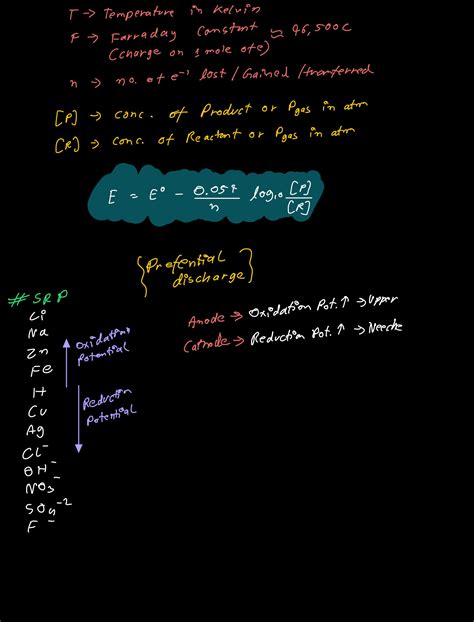 T → Temperature in Kelvin
F → Farraday Constant ≈ 96,500C
(charge on 1 mole of e)
n → no. of e⁻¹ lost / Gained / transferred
[P] → conc. of Product or Pgas in atm
[R] → conc. of Reactant or Pgas in atm
E = E° − 0.059/n log₁₀ [P]/[R]
{Prefential
discharge}
# SRP
Li
Na
Zn
Fe
H
Cu
Ag
Cl⁻
OH⁻
NO₃⁻
SO₄⁻²
F⁻
Oxidation
Potential
Reduction
Potential
Anode → Oxidation Pot. ↑ → Upper
Cathode → Reduction Pot. ↑ → Neeche